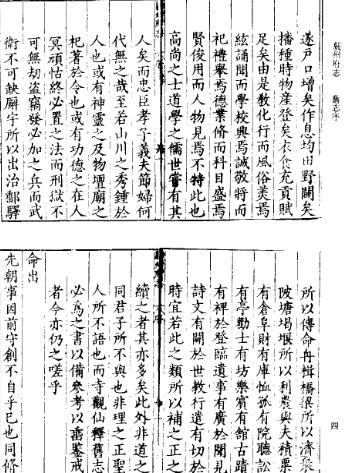 嚴州府志 舊志序
四
遂戶口增矣作息均田野闢矣
播種時物產登矣衣食充貢賦
足矣由是教化行而風俗美焉
絃誦聞而學校興焉誠敬將而
祀禮舉焉德業脩而科目盛焉
賢俊用而人物見焉不特此也
高尚之士道學之儒世嘗有其
人矣而忠臣孝子義夫節婦何
代無之哉至若山川之秀鍾於
人也或有神靈之及物壇廟之
祀著於令也或有功德之在人
冥頑怙終必置之法而刑獄不
可無刼盜竊發必加之兵而武
衛不可缺廨宇所以出治郵驛
所以傳命舟楫橋梁所以濟衆
陂塘堨堰所以利農與夫積粟
有倉阜財有庫恤孤有院聽訟
有亭勸士有坊樂賓有館古蹟
有裨於登臨遺事有廣於聞見
詩文有關於世教行遣有切於
時宜若此之類所以補之正之
續之者其亦多矣此外非道之
同君子所不與也非理之正聖
人所不語也而寺觀仙釋舊志
必爲之書以備參考以垂鑒戒
者今亦仍之嗟乎
命出
先朝事因前守創不自乎已也同脩